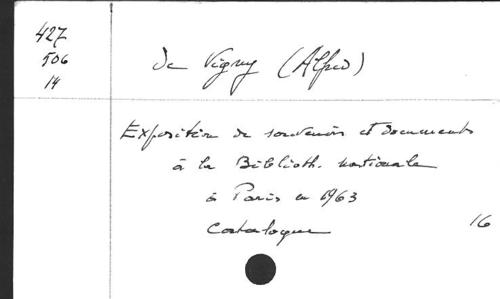 427
506
14
de Vigny (Alfred)
Exposition de souvenirs et documents
à la Biblioth. nationale
à Paris en 1963
Catalogue
16